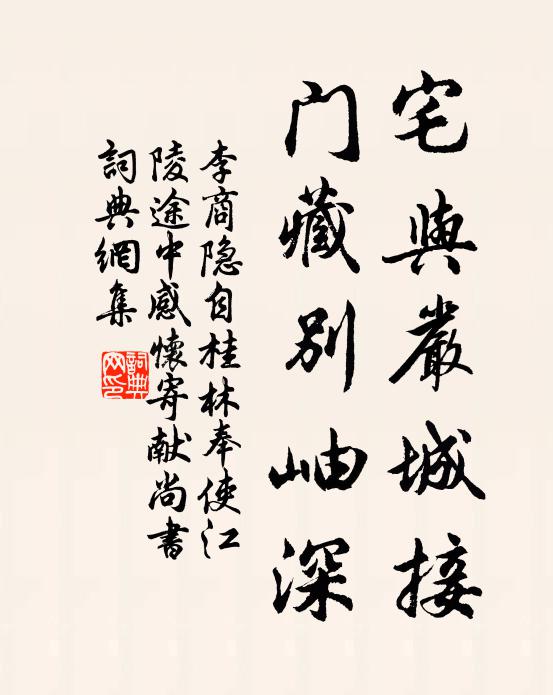 宅與嚴城接
門藏別岫深
李商隐自桂林奉使江
陵途中感懷寄献尚書
詞典網集
詞典
网印